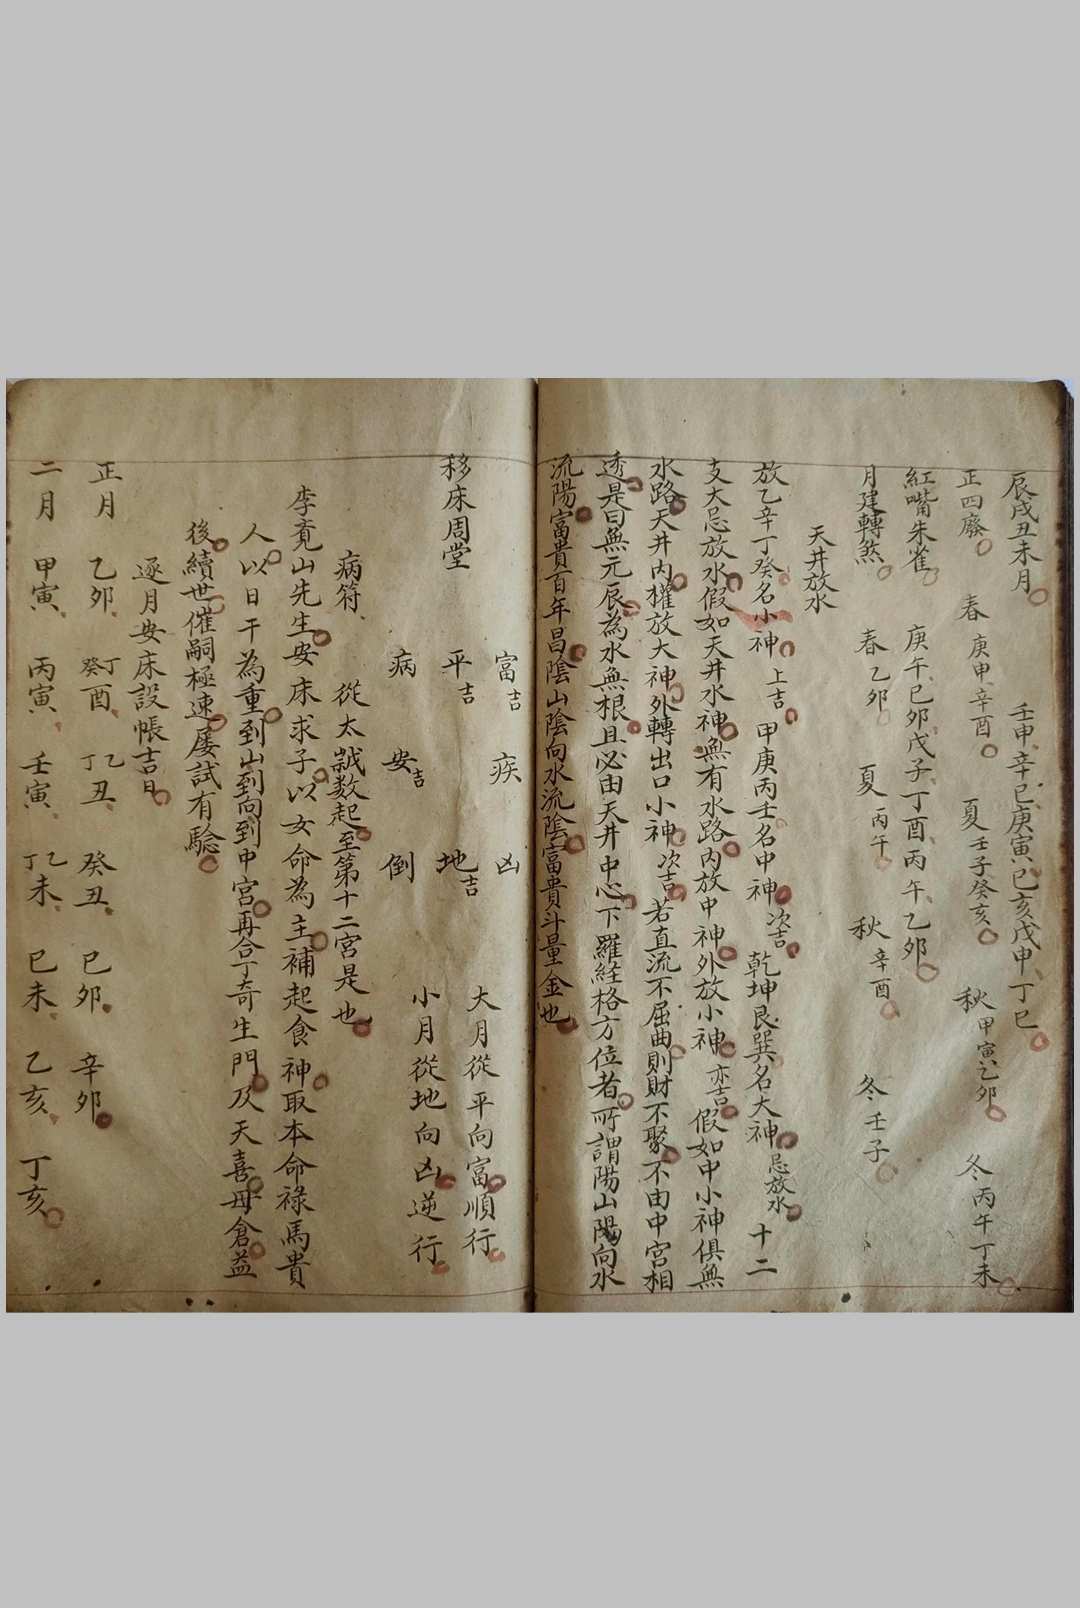 辰戌丑未月 壬申辛巳庚寅己亥戊申丁巳
正四廢 春庚申辛酉 夏壬子癸亥 秋甲寅乙卯 冬丙午丁未
紅嘴朱雀 庚午己卯戊子丁酉丙午乙卯
月建轉煞 春乙卯 夏丙午 秋辛酉 冬壬子
天井放水
放乙辛丁癸名小神上吉甲庚丙壬名中神次吉乾坤艮巽名大神忌放水十二
支大忌放水假如天井水神無有水路内放中神外放小神亦吉假如中小神俱無
水路天井内權放大神外轉出口小神次吉若直流不屈曲則財不聚不由中宮相
透是曰無元辰為水無根且必由天井中心下羅経格方位者所謂陽山陽向水
流陽富貴百年昌陰山陰向水流陰富貴斗量金也
移床周堂
富吉 疾 凶 大月從平向富順行
平吉 地吉 小月從地向凶逆行
病 安吉 倒
病符 從太誠数起至第十二宮是也
李竟山先生安床求子以女命為主補起食神取本命祿馬貴
人以日干為重到山到向到中宮再合丁奇生門及天喜母倉益
後續世催嗣極速屢試有驗
逐月安床設帳吉日
正月 乙卯 癸酉 丁酉 乙丑 丁丑 癸丑 巳卯 辛卯
二月 甲寅 丙寅 壬寅 乙未 丁未 巳未 乙亥 丁亥